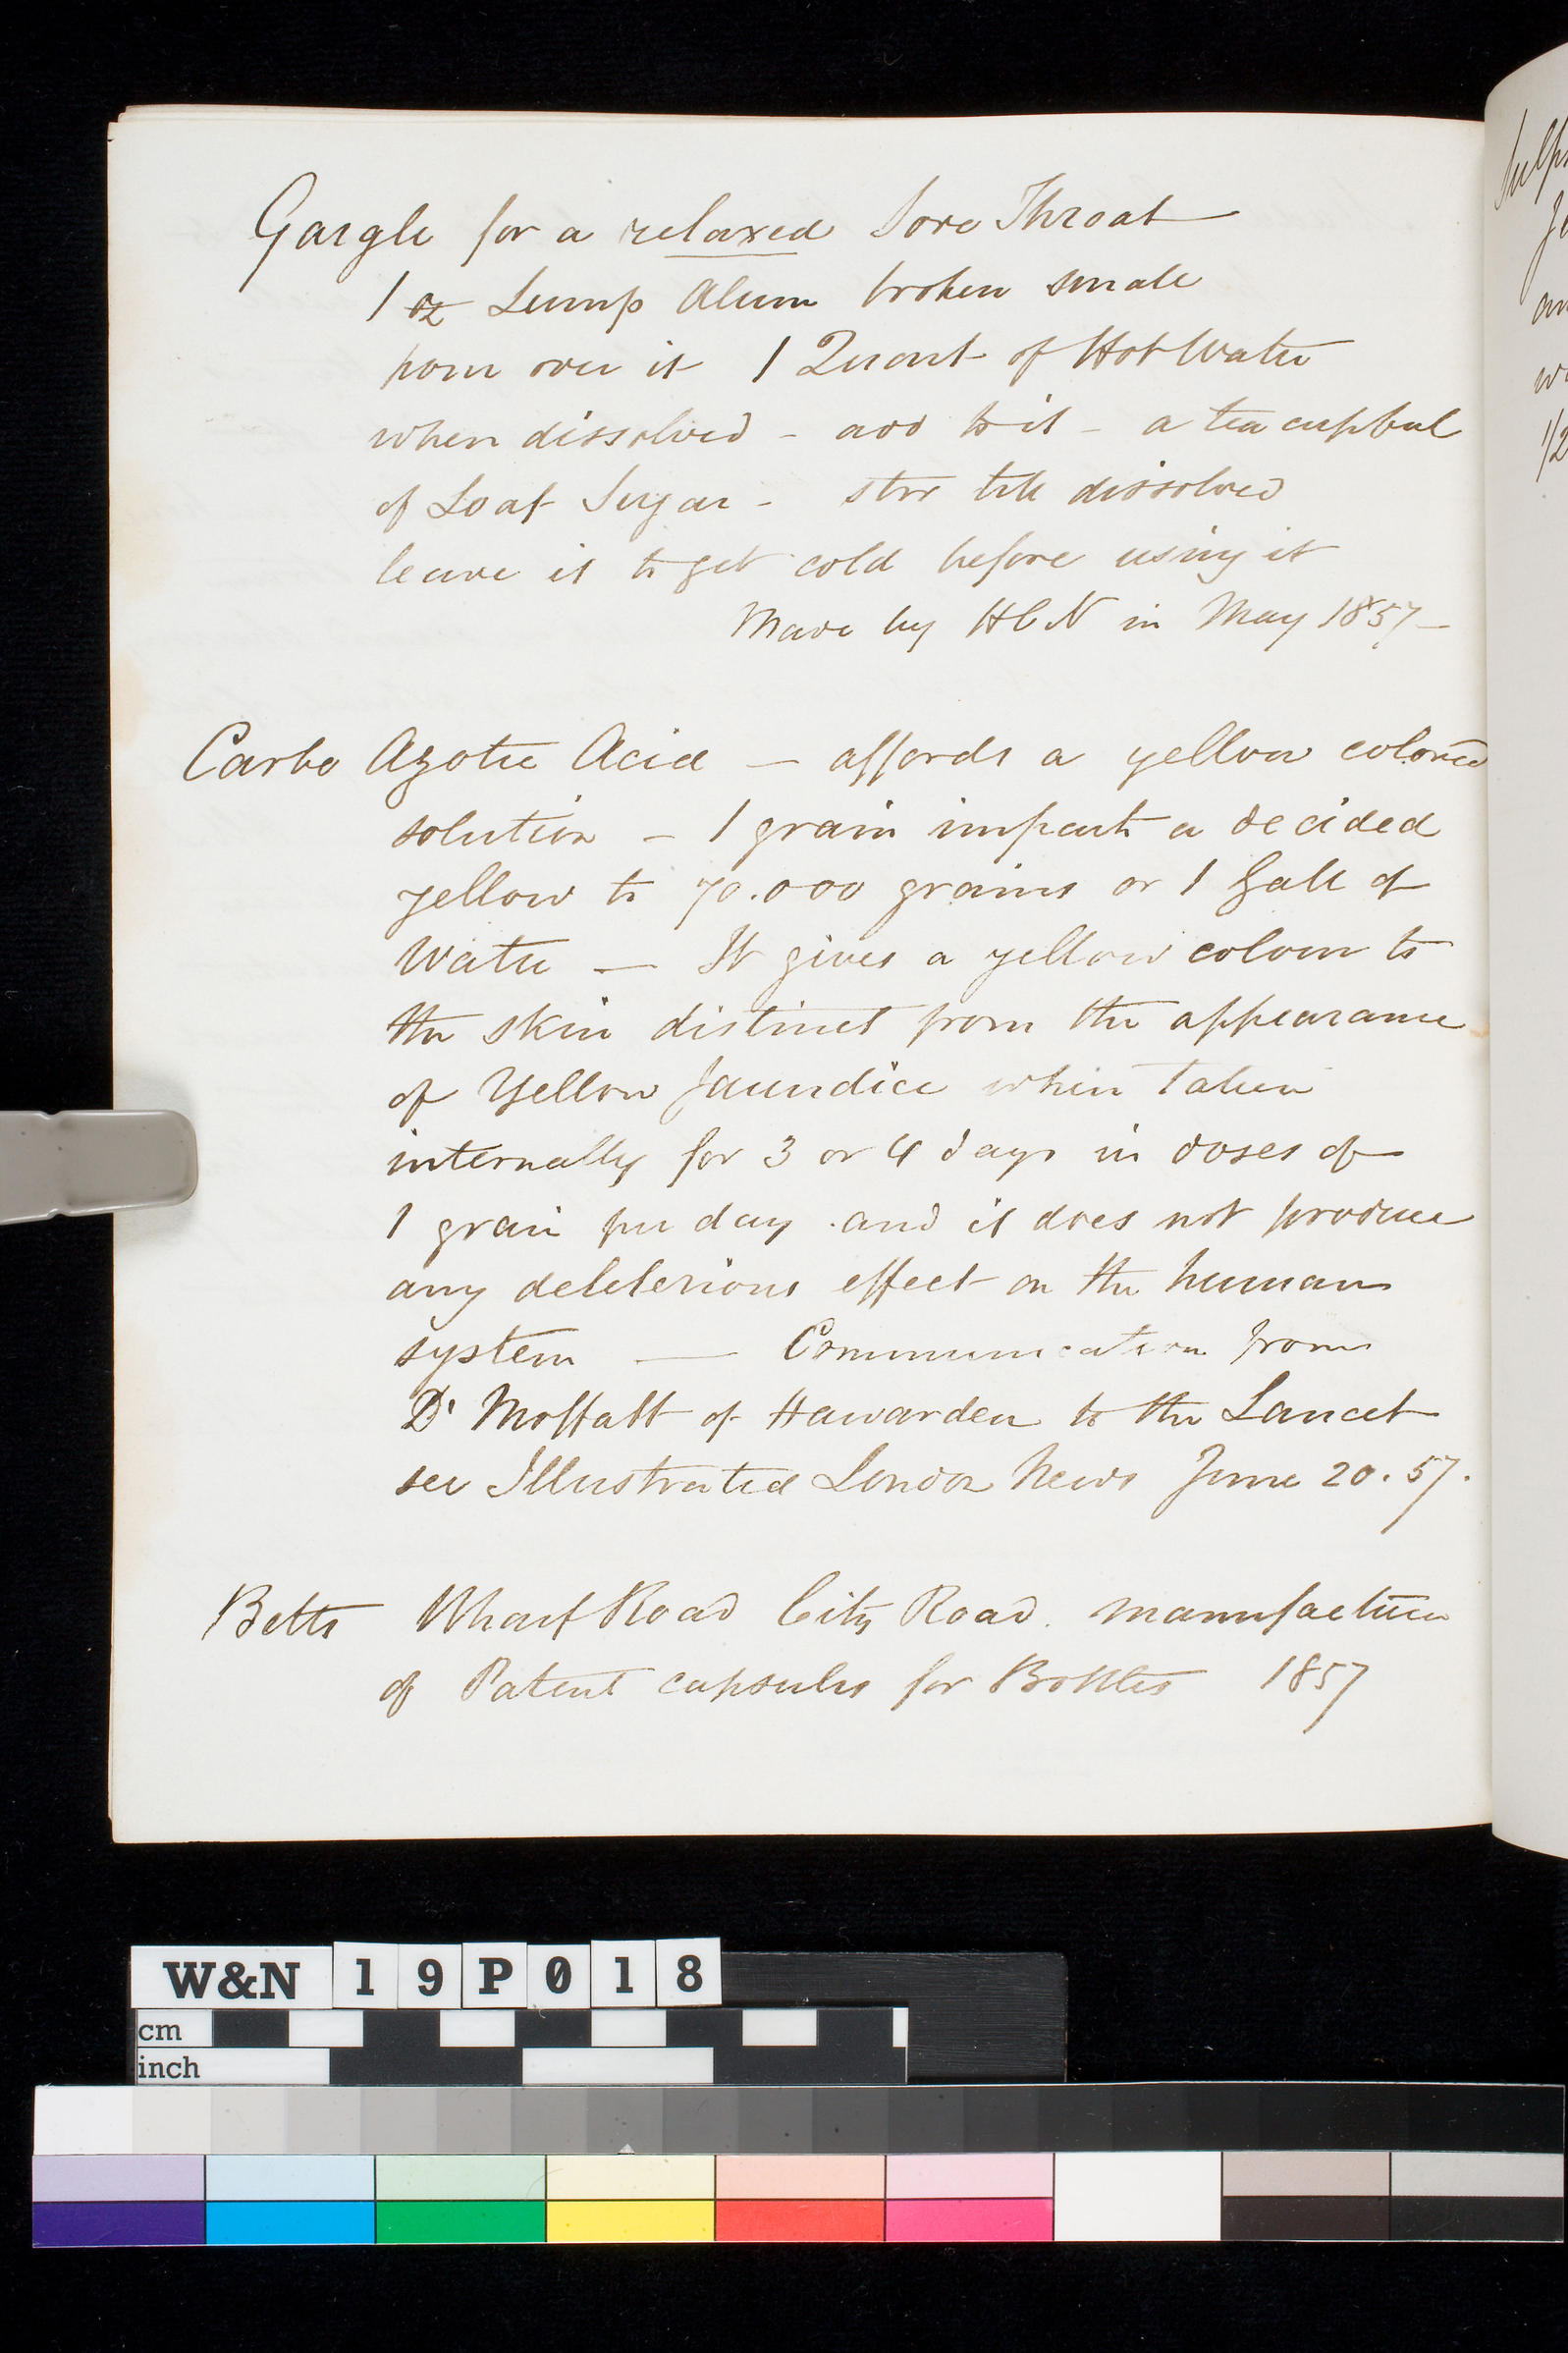 Gargle for a relaxed Sore Throat
1 oz Lump Alum broken small
pour over it 1 Quart of Hot Water
when dissolved - add to it - a tea cupful
of Loaf Sugar - stir till dissolved
leave it to get cold before using it
Made by HCN in May 1857 -
Carbo Azotic Acid - affords a yellow colored
solution - 1 grain imparts a decided
yellow to 70.000 grains or 1 Gall of
Water - It gives a yellow colour to
the skin distinct from the appearance
of Yellow Jaundice when taken
internally for 3 or 4 days in doses of
1 grain per day and it does not produce
any deleterious effect on the human
system - Communication from
Dr Moffatt of Hawarden to the Lancet
see Illustrated London News June 20. 57.
Betts Wharf Road City Road. manufacturer
of Patent capsules for Bottles 1857
1/2
W&N 19P018
cm
inch